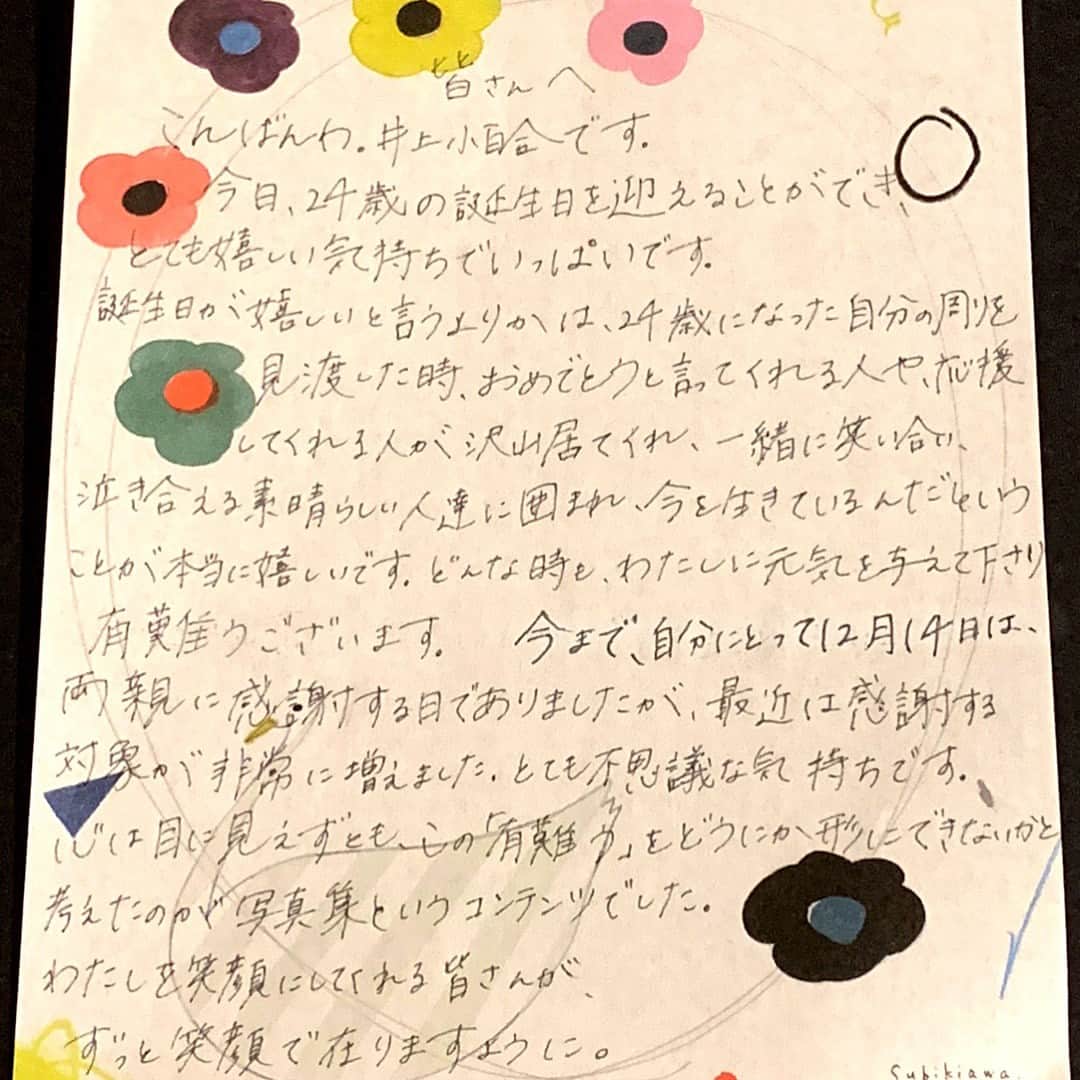 皆さんへ
こんばんわ。井上小百合です。
今日、24歳の誕生日を迎えることができ、
とても嬉しい気持ちでいっぱいです。
誕生日が嬉しいと言うよりかは、24歳になった自分の周りを
見渡した時、おめでとうと言ってくれる人や、応援
してくれる人が沢山居てくれ、一緒に笑い合い、
泣き合える素晴らしい人達に囲まれ、今を生きているんだという
ことが本当に嬉しいです。どんな時も、わたしに元気を与えて下さり
有難うございます。 今まで、自分にとって12月14日は、
両親に感謝する日でありましたが、最近は感謝する
対象が非常に増えました。とても不思議な気持ちです。
心は目に見えずとも、この「有難う」をどうにか形にできないかと
考えたのが写真集というコンテンツでした。
わたしを笑顔にしてくれる皆さんが、
ずっと笑顔で在りますように。
Subikiawa.